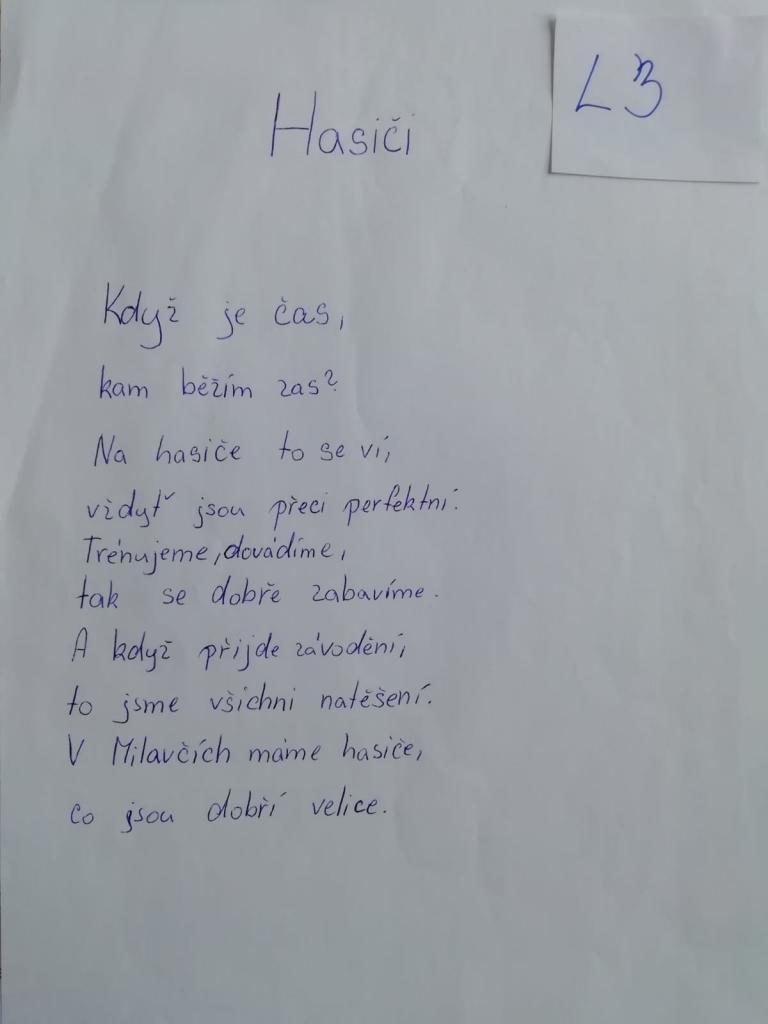 L3
Hasiči
Když je čas,
kam běžím zas?
Na hasiče to se ví,
vždyť jsou přeci perfektní.
Trénujeme, dovádíme,
tak se dobře zabavíme.
A když přijde závodění,
to jsme všichni natěšení.
V Milavčích máme hasiče,
co jsou dobří velice.